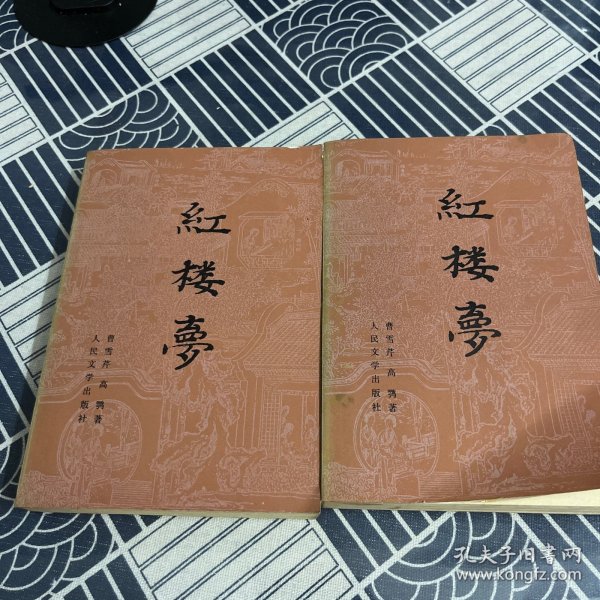 紅楼夢
曹雪芹 高鹗著
人民文学出版社
紅楼夢
曹雪芹 高鹗著
人民文学出版社
孔夫子旧书网
www.kongfz.com